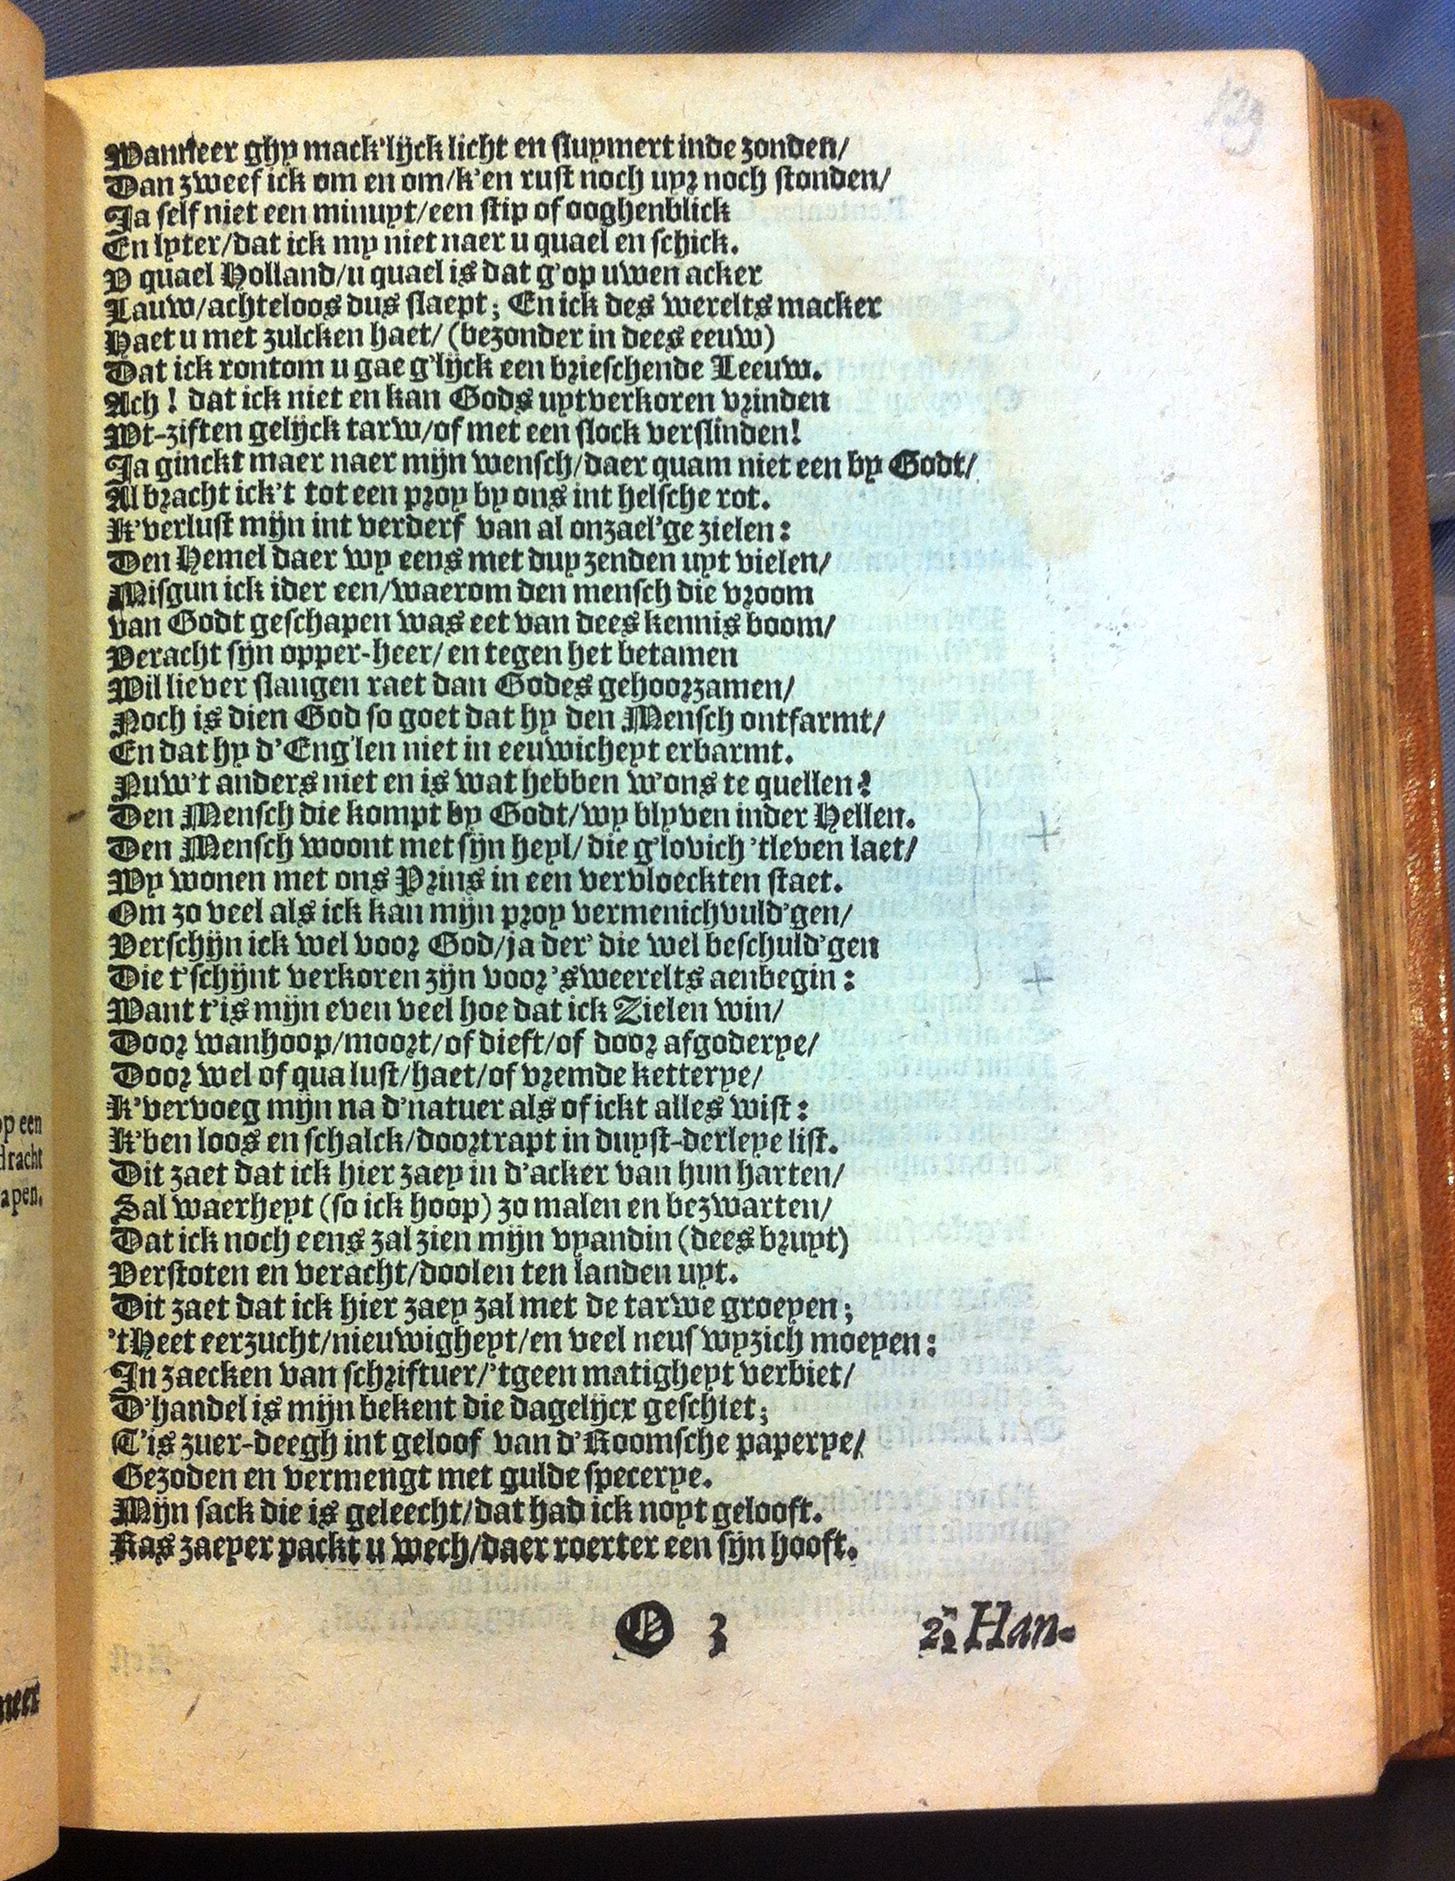 129
Wanneer ghy mack'lijck licht en sluymert inde zonden/
Dan zweef ick om en om/k'en rust noch uyr noch stonden/
Ja self niet een minuyt/een stip of ooghenblick
En lyter/dat ick my niet naer u quael en schick.
V quael Holland/u quael is dat g'op uwen acker
Lauw/achteloos dus slaept; En ick des werelts macker
Haet u met zulcken haet/ (bezonder in dees eeuw)
Dat ick rontom u gae g'lijck een brieschende Leeuw.
Ach! dat ick niet en kan Gods uytverkoren vrinden
Wt-ziften gelijck tarw/of met een slock verslinden!
Ja ginckt maer naer mijn wensch/daer quam niet een by Godt/
Al bracht ick't tot een proy by ons int helsche rot.
K'verlust mijn int verderf van al onzael'ge zielen:
Den Hemel daer wy eens met duyzenden uyt vielen/
Misgun ick ider een/waerom den mensch die vroom
van Godt geschapen was eet van dees kennis boom/
Veracht sijn opper-heer/en tegen het betamen
Wil liever slangen raet dan Godes gehoorzamen/
Noch is dien God so goet dat hy den Mensch ontfarmt/
En dat hy d'Eng'len niet in eeuwicheyt erbarmt.
Nuw't anders niet en is wat hebben w'ons te quellen?
Den Mensch die kompt by Godt/wy blyven inder Hellen.
Den Mensch woont met sijn heyl/die g'lovich 'tleven laet/
Wy wonen met ons Prins in een vervloeckten staet.
Om zo veel als ick kan mijn proy vermenichvuld'gen/
Verschijn ick wel voor God/ja der' die wel beschuld'gen
Die t'schijnt verkoren zijn voor 'sweerelts aenbegin:
Want t'is mijn even veel hoe dat ick Zielen win/
Door wanhoop/moort/of dieft/of door afgoderye/
Door wel of qua lust/haet/of vremde ketterye/
K'vervoeg mijn na d'natuer als of ickt alles wist:
K'ben loos en schalck/doortrapt in duyst-derleye list.
Dit zaet dat ick hier zaey in d'acker van hun harten/
Sal waerheyt (so ick hoop) zo malen en bezwarten/
Dat ick noch eens zal zien mijn vyandin (dees bruyt)
Verstoten en veracht/doolen ten landen uyt.
Dit zaet dat ick hier zaey zal met de tarwe groeyen;
'tHeet eerzucht/nieuwigheyt/en veel neus wyzich moeyen:
In zaecken van schriftuer/'tgeen matigheyt verbiet/
D'handel is mijn bekent die dagelijcx geschiet;
T'is zuer-deegh int geloof van d'Roomsche paperye/
Gezoden en vermengt met gulde specerye.
Mijn sack die is geleecht/dat had ick noyt gelooft.
Ras zaeyer packt u wech/daer roerter een sijn hooft.
O 3
Han-
op een
dracht
apen.
neer